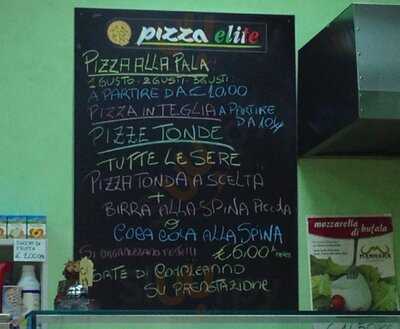 pizza elite
PIZZA ALLA PALA
1 GUSTO - 2 GUSTI - 3 GUSTI
A PARTIRE DA € 10,00
PIZZA IN TEGLIA A PARTIRE
DA 10
PIZZE TONDE
TUTTE LE SERE
PIZZA TONDA A SCELTA
+
BIRRA ALLA SPINA PICCOLA
O
COCA COLA ALLA SPINA
€ 6,00
SI ORGANIZZANO
TORTE DI COMPLEANNO
SU PRENOTAZIONE
SUCCHI DI
FRUTTA
€ 1,00
mozzarella
di bufala